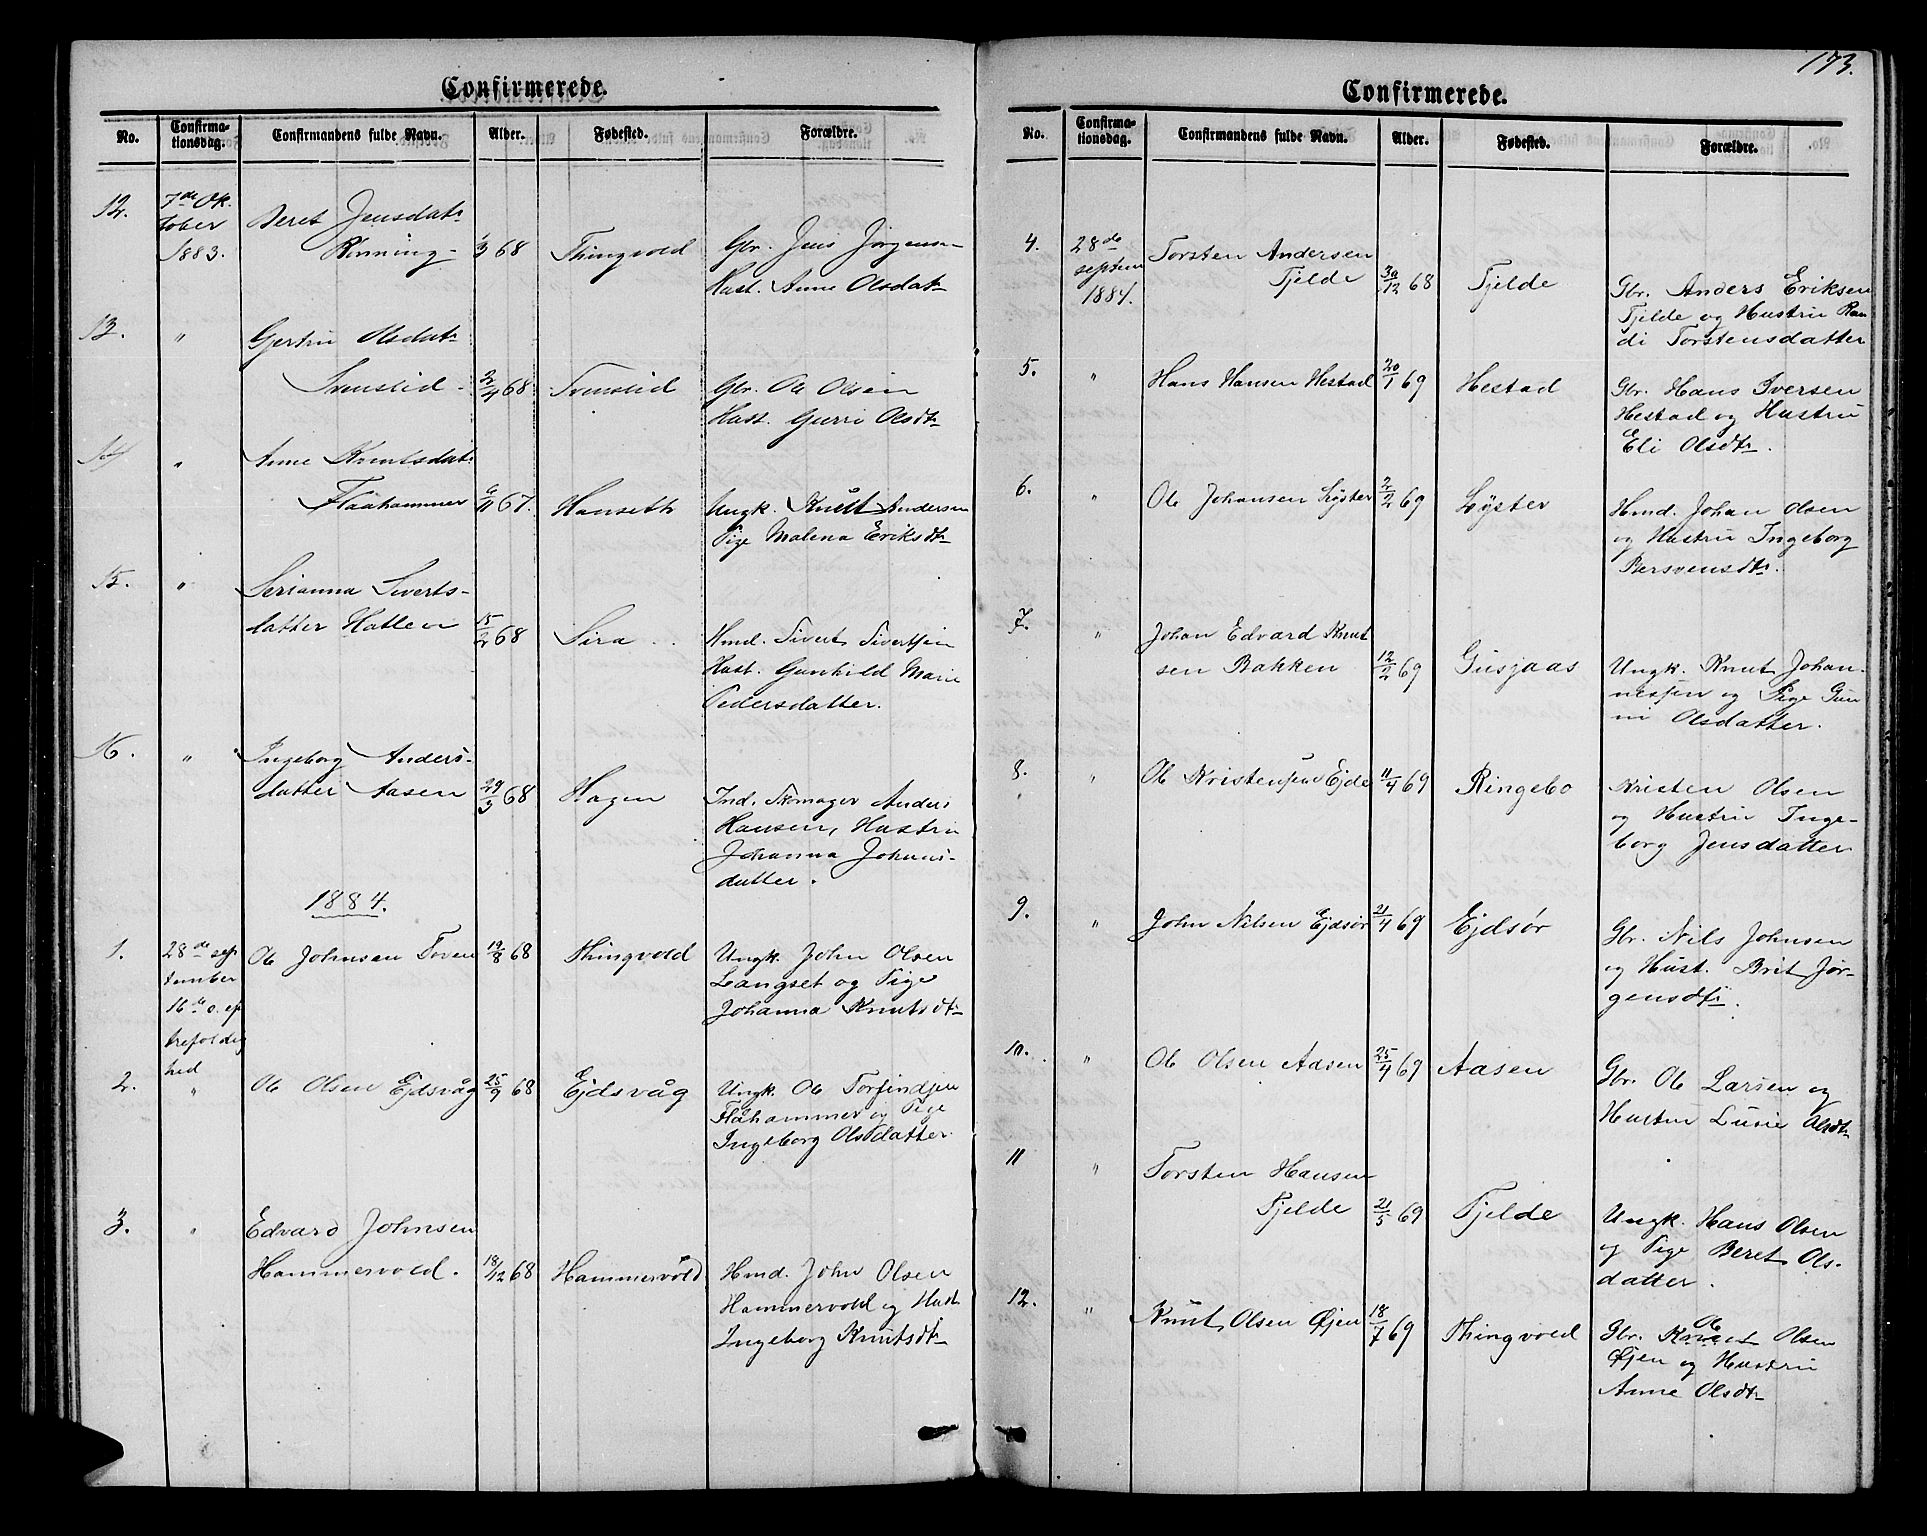 Confirmerede.
No. Confirma-tionsdag. Confirmandens fulde Navn. Alder. Fødested. Forældre.
12. 7de Ok-
tober
1883.
Beret Jensdatr
Rønning 3 68 Thingvold Gbr. Jens Jørgensen
Hust. Anne Olsdatr
13. " Gjertru Olsdatr
Svenslid 2/4 68 Svenslid Gbr. Ole Olsen
Hust. Gurri Olsdtr
14 " Anne Knutsdatr
Flaahammer 6/11 67. Hanseth Ungk. Knut Andersen
Pige Malena Eriksdtr
15. " Serianna Siverts-
datter Hatlen 15/2 68 Sira Hmd. Sivert Sivertsen
Hust. Gunhild Marie
Pedersdatter.
16. " Ingeborg Anders-
datter Aasen 29/3 68 Hagen Ind. Skomager Anders
Hansen, Hustru
Johanna Johans-
datter.
1884.
1. 28de sep
tember
16de s. ef
trefoldig
hed
Ole Johnsen Toven 19/8 68 Thingvold Ungk. John Olsen
Langset og Pige
Johanna Knutsdtr
2. " Ole Olsen Ejdsvåg 25/9 68 Ejdsvåg Ungk. Ole Torfindsen
Flåhammer og Pige
Ingeborg Olsdatter
3. " Edvard Johnsen
Hammervold. 18/12 68 Hammervold Hmd. John Olsen
Hammervold og Hust
Ingeborg Knutsdtr
173.
Confirmerede.
No. Confirma-tionsdag. Confirmandens fulde Navn. Alder. Fødested. Forældre.
4. 28de
septem
1884.
Torsten Andersen
Tjelde 30/12 68 Tjelde Gbr. Anders Eriksen
Tjelde og Hustru Ran
di Torstensdatter
5. " Hans Hansen Hestad 20/1 69 Hestad Gbr. Hans Iversen
Hestad og Hustru
Eli Olsdtr.
6. " Ole Johansen Lyster 2/2 69 Lyster Hmd. Johan Olsen
og Hustru Ingeborg
Bersvensdtr.
7. " Johan Edvard Knut
sen Bakken 12/2 69 Gusjaas Ungk. Knut Johan-
nessen og Pige Gun
ni Olsdatter.
8. " Ole Kristensen Ejde 11/4 69 Ringebo Kristen Olsen
og Hustru Inge-
borg Jensdatter
9. " John Nilsen Ejdsør 21/4 69 Ejdsør Gbr. Nils Johnsen
og Hust. Brit Jør-
gensdtr.
10. " Ole Olsen Aasen 25/4 69 Aasen Gbr. Ole Larsen og
Hustru Lusie Olsdtr
11 " Torsten Hansen
Tjelde 21/5 69 Tjelde Ungk. Hans Olsen
og Pige Beret Ols-
datter.
12. " Knut Olsen Øjen 18/7 69 Thingvold Gbr. Ole Olsen
Øjen og Hustru
Anne Olsdtr